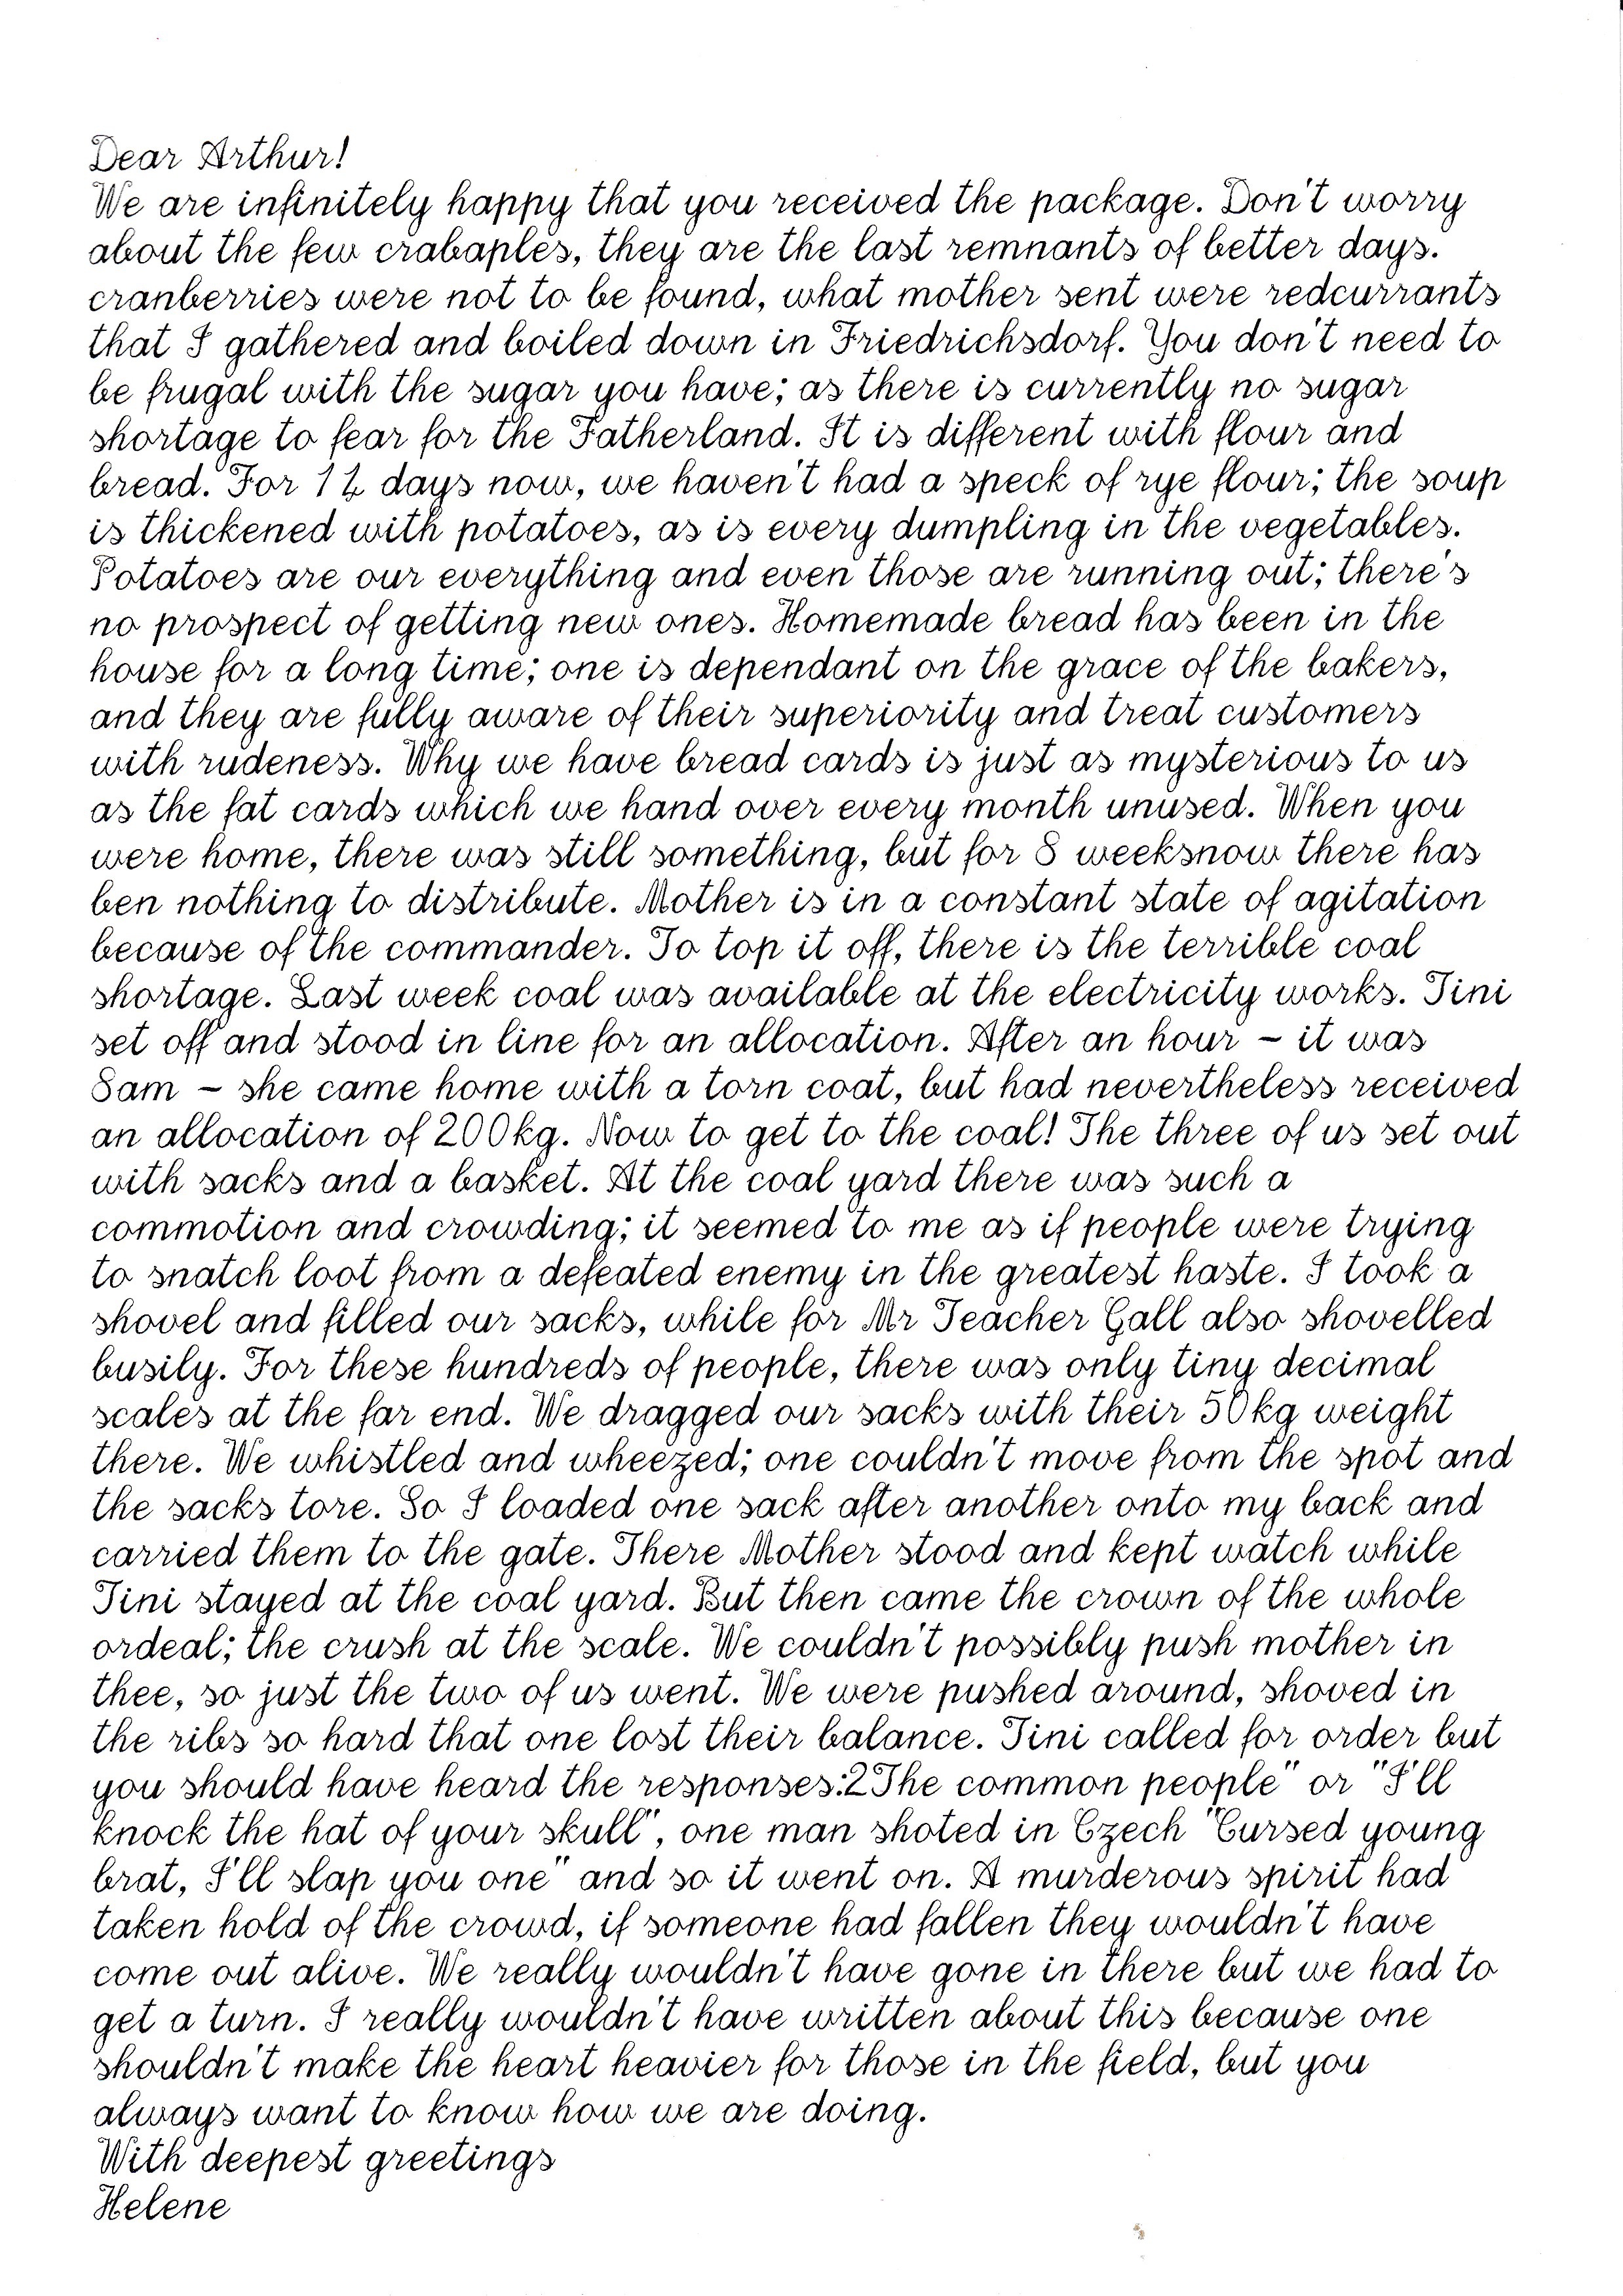 Dear Arthur!
We are infinitely happy that you received the package. Don't worry
about the few crabaples, they are the last remnants of better days.
cranberries were not to be found, what mother sent were redcurrants
that I gathered and boiled down in Friedrichsdorf. You don't need to
be frugal with the sugar you have; as there is currently no sugar
shortage to fear for the Fatherland. It is different with flour and
bread. For 12 days now, we haven't had a speck of rye flour; the soup
is thickened with potatoes, as is every dumpling in the vegetables.
Potatoes are our everything and even those are running out; there's
no prospect of getting new ones. Homemade bread has been in the
house for a long time; one is dependant on the grace of the bakers,
and they are fully aware of their superiority and treat customers
with rudeness. Why we have bread cards is just as mysterious to us
as the fat cards which we hand over every month unused. When you
were home, there was still something, but for 8 weeksnow there has
ben nothing to distribute. Mother is in a constant state of agitation
because of the commander. To top it off, there is the terrible coal
shortage. Last week coal was available at the electricity works. Tini
set off and stood in line for an allocation. After an hour – it was
8am – she came home with a torn coat, but had nevertheless received
an allocation of 200kg. Now to get to the coal! The three of us set out
with sacks and a basket. At the coal yard there was such a
commotion and crowding; it seemed to me as if people were trying
to snatch loot from a defeated enemy in the greatest haste. I took a
shovel and filled our sacks, while for Mr Teacher Gall also shovelled
busily. For these hundreds of people, there was only tiny decimal
scales at the far end. We dragged our sacks with their 50kg weight
there. We whistled and wheezed; one couldn't move from the spot and
the sacks tore. So I loaded one sack after another onto my back and
carried them to the gate. There Mother stood and kept watch while
Tini stayed at the coal yard. But then came the crown of the whole
ordeal; the crush at the scale. We couldn't possibly push mother in
thee, so just the two of us went. We were pushed around, shoved in
the ribs so hard that one lost their balance. Tini called for order but
you should have heard the responses:2The common people" or "I'll
knock the hat of your skull", one man shoted in Czech "Cursed young
brat, I'll slap you one" and so it went on. A murderous spirit had
taken hold of the crowd, if someone had fallen they wouldn't have
come out alive. We really wouldn't have gone in there but we had to
get a turn. I really wouldn't have written about this because one
shouldn't make the heart heavier for those in the field, but you
always want to know how we are doing.
With deepest greetings
Helene